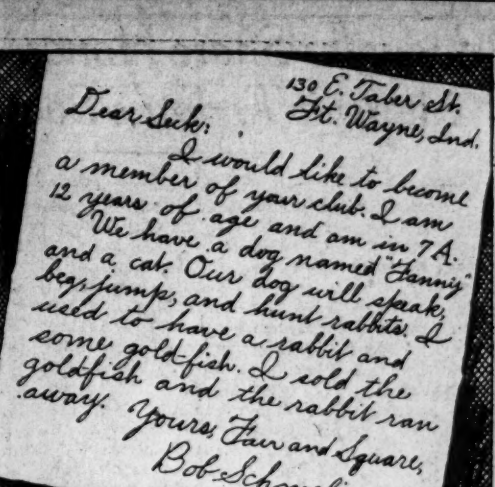 130 E. Taber St.
Ft. Wayne, Ind.
Dear Seck:
I would like to become
a member of your club. I am
12 years of age and am in 7A.
We have a dog named "Fanny"
and a cat. Our dog will speak,
beg, jump, and hunt rabbits. I
used to have a rabbit and
some gold-fish. I sold the
goldfish and the rabbit ran
away.
Yours, Fair and Square,
Bob